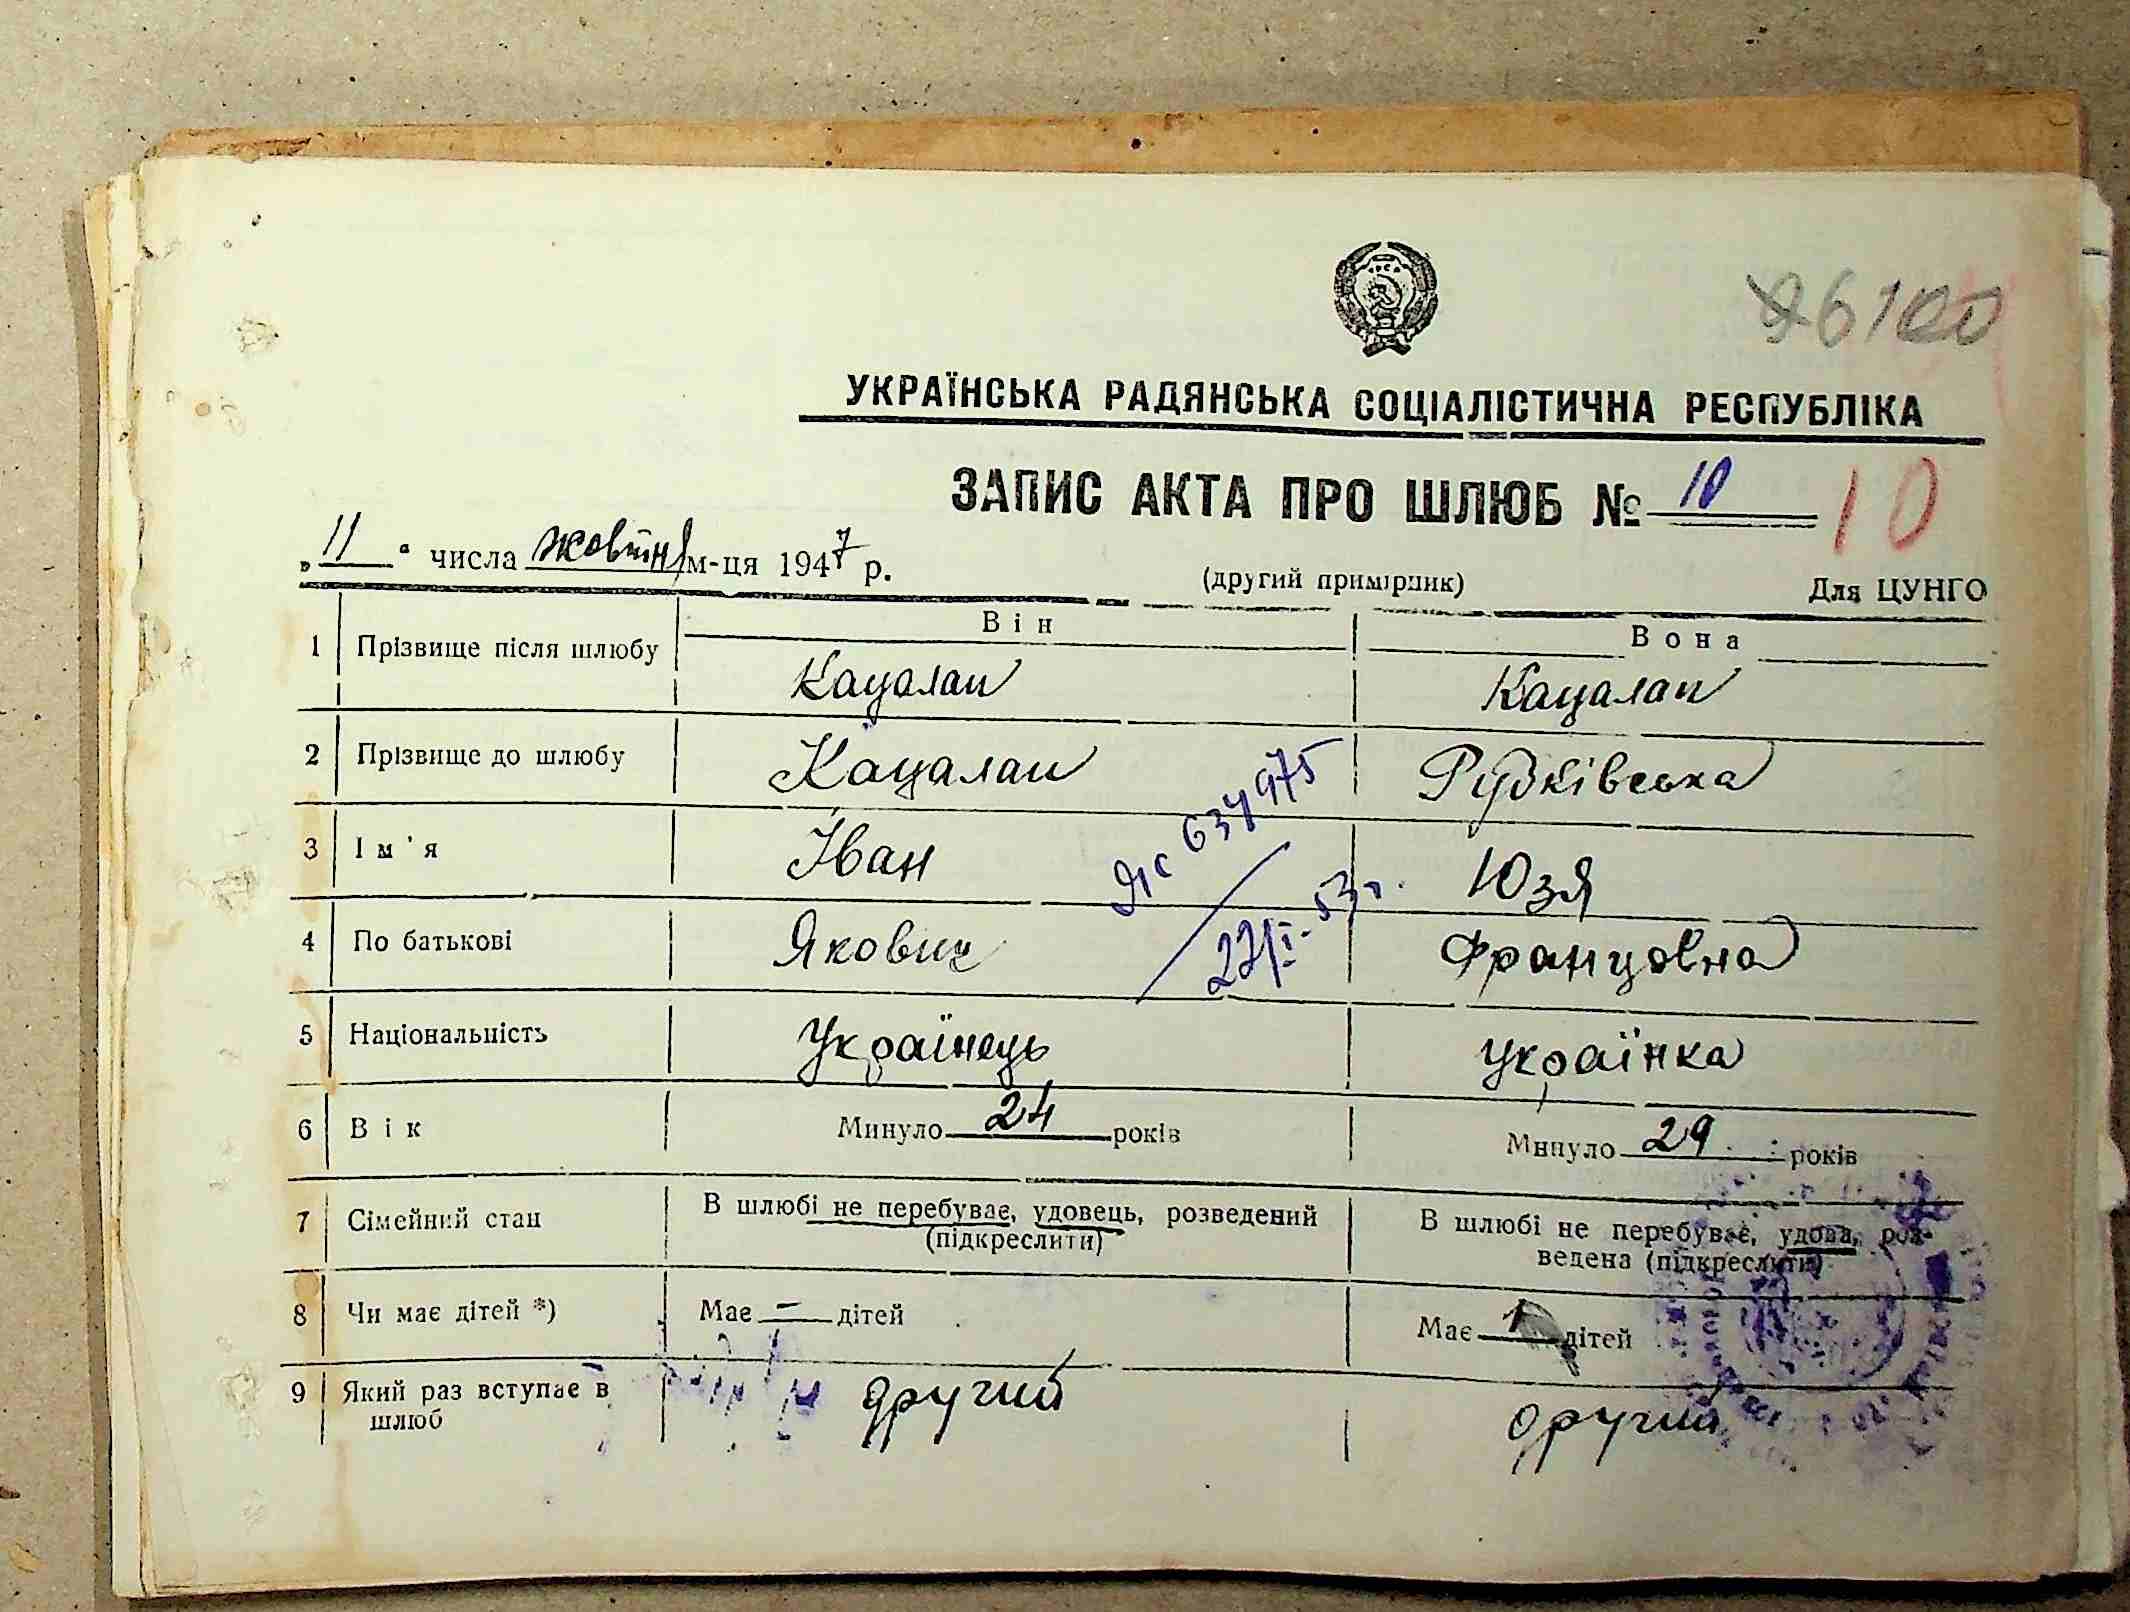 26100
УКРАЇНСЬКА РАДЯНСЬКА СОЦІАЛІСТИЧНА РЕСПУБЛІКА
ЗАПИС АКТА ПРО ШЛЮБ № 10 10
„ 11 “ числа жовтня м-ця 1947 р.
(другий примірник) Для ЦУНГО
Він Вона
1 Прізвище після шлюбу Кацалап Кацалап
2 Прізвище до шлюбу Кацалап Рудківська
3 Ім'я Іван Юзя
ЯС 637975
22/I-53 г.
4 По батькові Якович Францовна
5 Національність Українець Українка
6 Вік Минуло 24 років Минуло 29 років
7 Сімейний стан В шлюбі не перебуває, удовець, розведений (підкреслити) В шлюбі не перебуває, удова, роз-
ведена (підкреслити)
8 Чи має дітей *) Має — дітей Має 1 дітей
9 Який раз вступає в шлюб другий другий